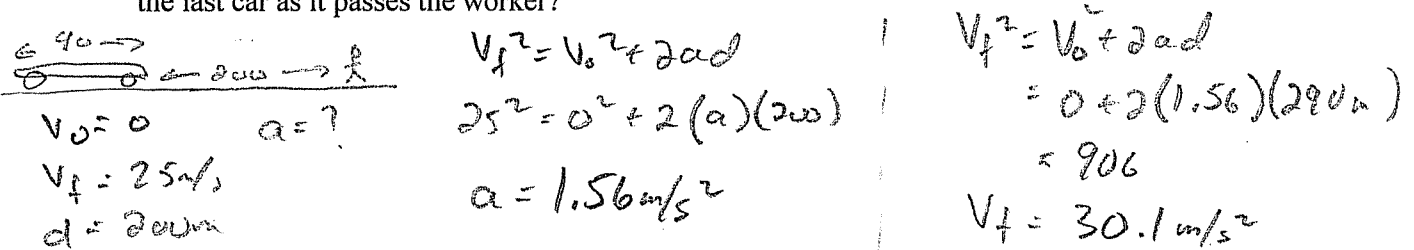 the last car as it passes the worker?
← 90 →
← 200 →
V₀ = 0 a = ?
V_f = 25 m/s
d = 200m
V_f² = V₀² + 2ad
25² = 0² + 2(a)(200)
a = 1.56 m/s²
V_f² = V₀² + 2ad
= 0 + 2(1.56)(290m)
= 906
V_f = 30.1 m/s²